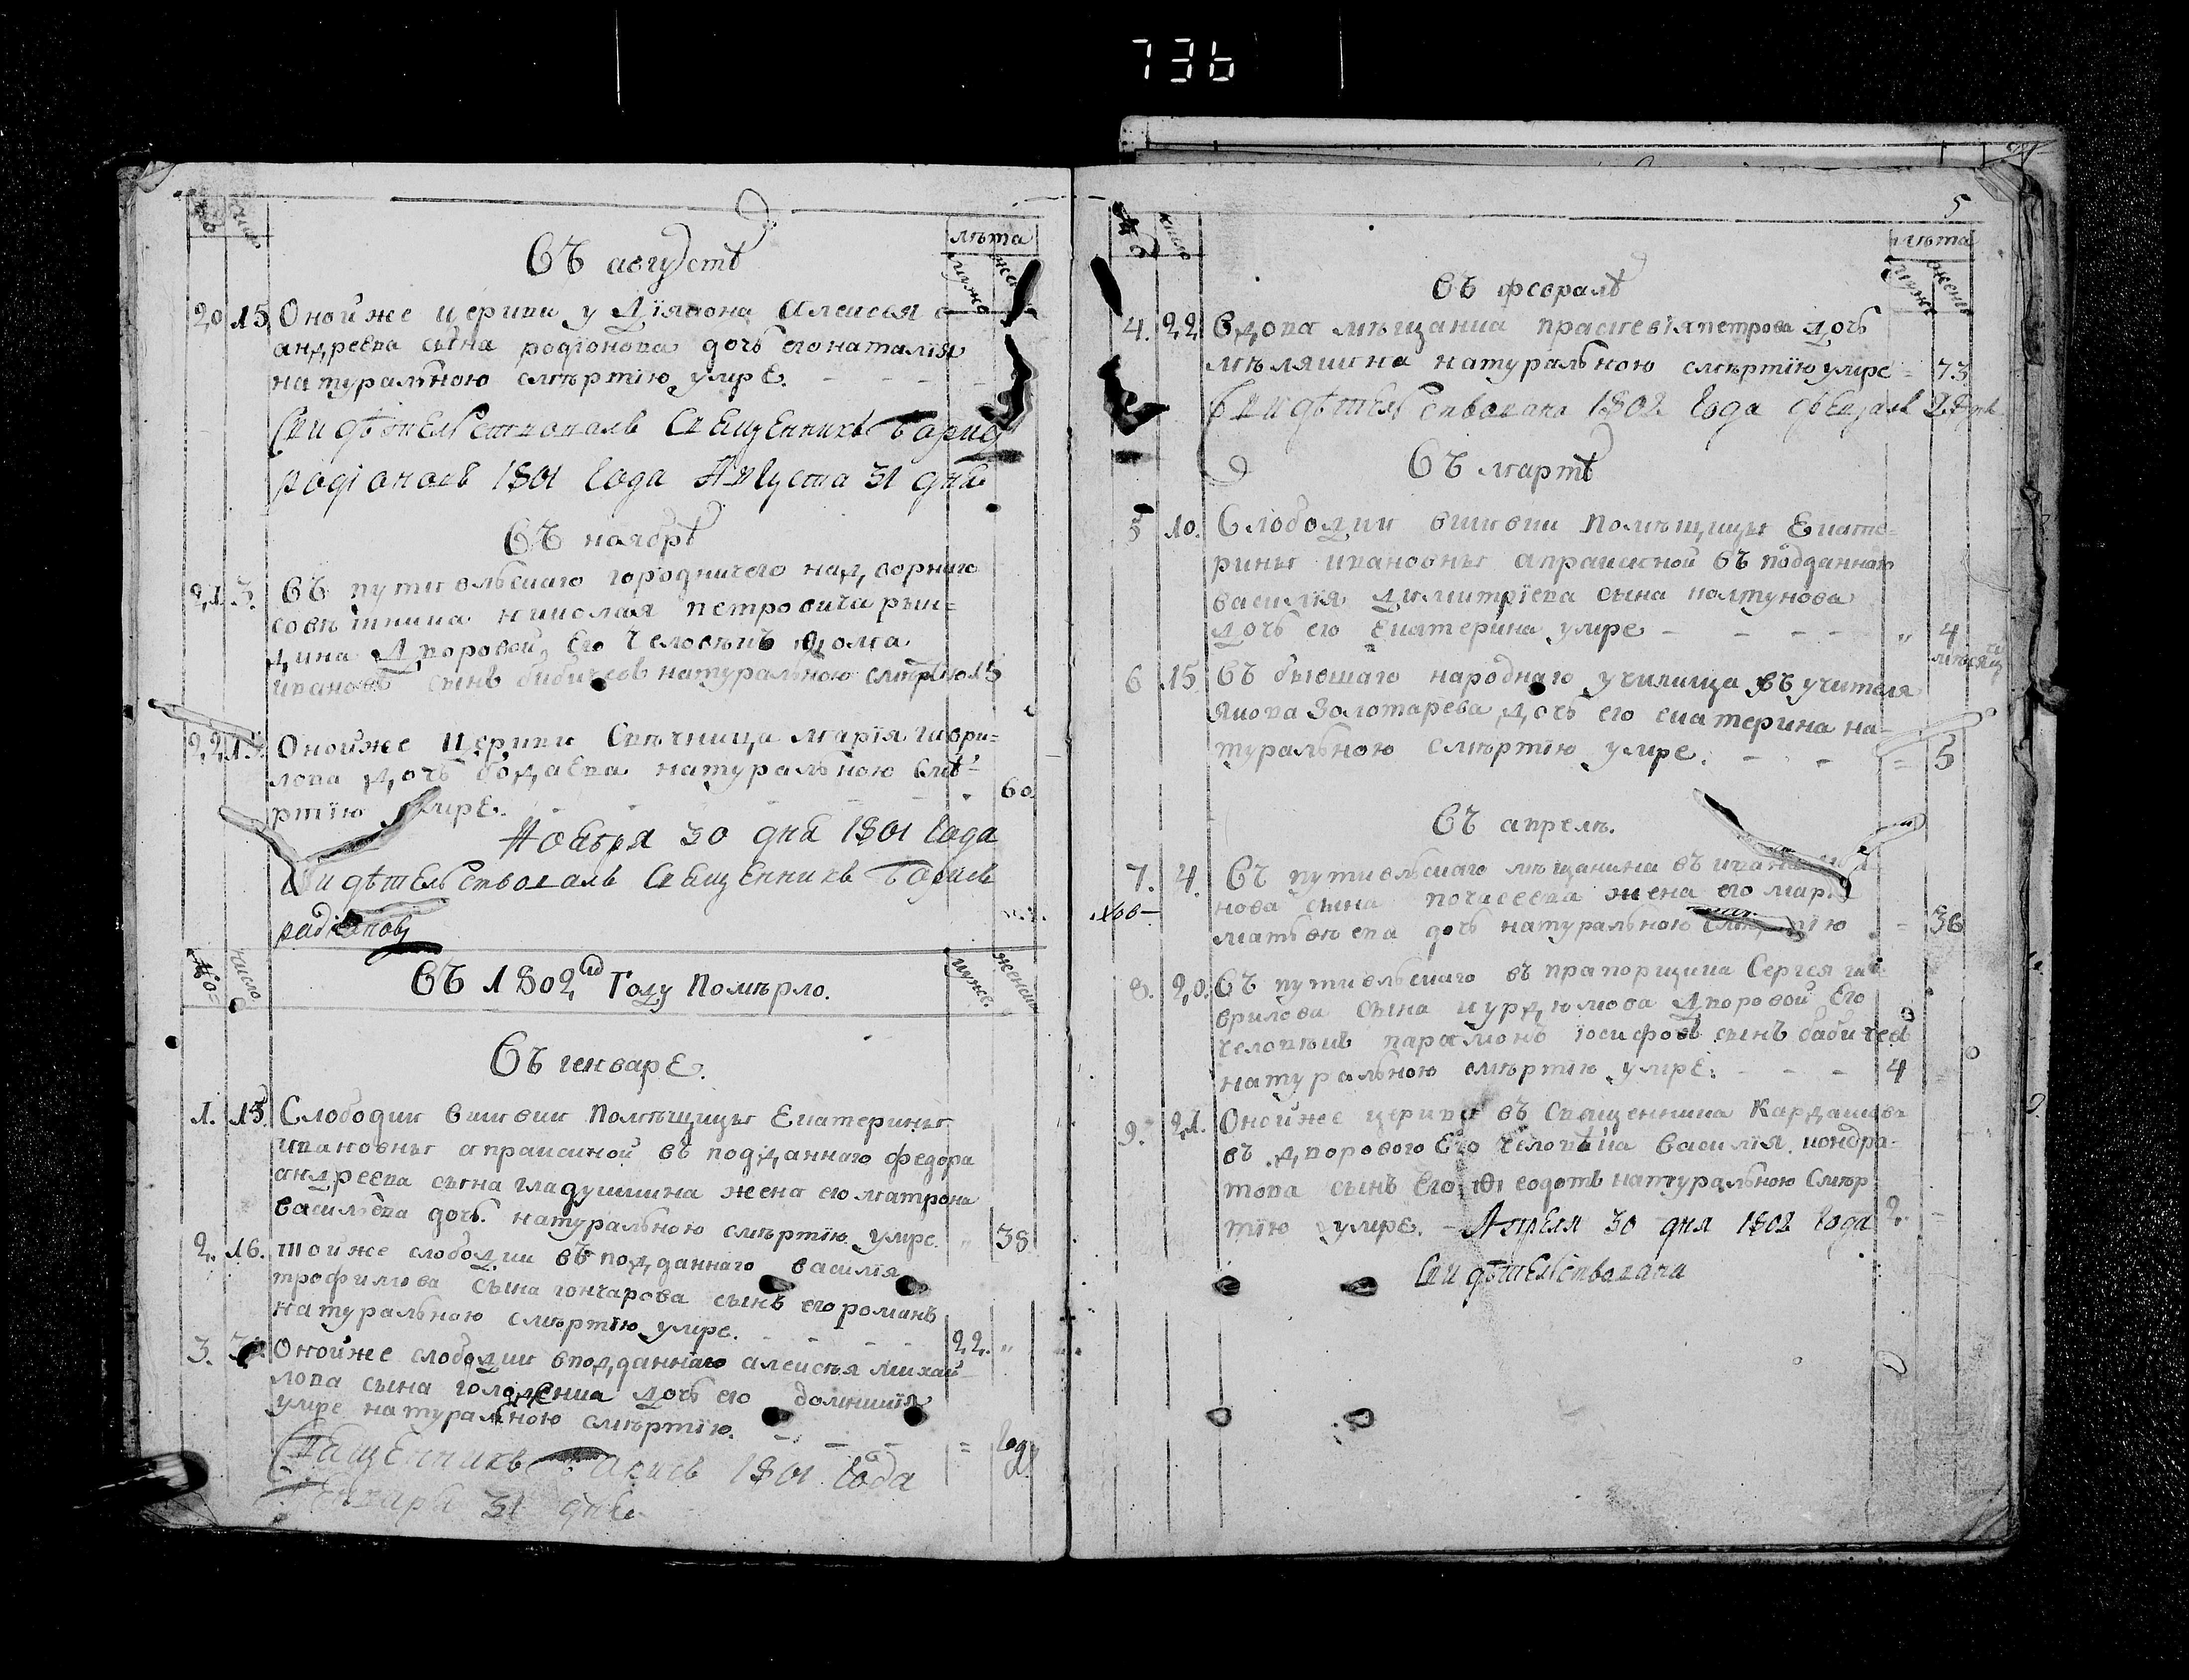 736
№
число
лѣта
мужс
Въ августѣ
20 15 Оной же церкви у Дїякона Алеѯѣя
андреева сына родїонова дочь его наталїя
натуральною смѣртїю умре.
Свидѣтельствовалъ Священникъ Борисъ
родіоновъ 1801 года Августа 31 дня
Въ ноябрѣ
21 3. Въ путивльскаго городничего надворнаго
совѣтника николая петровича рын=
дина Дворовой Его Человѣкъ Ѳома
ивановъ сынъ бибичевъ натуральною смѣртїю 15
22 15. Оной же Церкви Свѣчница марїя гаври=
лова дочь бодаева натуральною смѣ=
ртїю умре. 60.
Ноября 30 дня 1801 года
Свидѣтельствовалъ Священникъ Борисъ
радіоновъ
№ число мужс. женска
Въ 1802м Году Помѣрло.
Въ генваре.
1. 15 Слободки вшивки Помѣщицы Екатерины
ивановны апраксиной въ подданнаго федора
андреева сына гладушкина жена его матрона
васильева дочь натуральною смѣртїю умре. " 38
2. 16. тойже слободки въ подданнаго василїя
трофимова сына гончарова сынъ его романъ
натуральною смѣртїю умре. 22. "
3. Онойже слободки вподданнаго алеѯѣя михай
лова сына дочь его домникїя
умре натуральною смѣртїю. = году
Священникъ 1801 года
Генваря 31 дня
5
№ число
лѣта
мужс женс
Въ февралѣ
4. 22 Вдова мѣщанка праскевїя петрова дочь
натуральною смѣртїю умре = 73
Свидѣтельствовано 1802 года февраля 28 дня
Въ мартѣ
5 10. Слободки вшивки Помѣщицы Екате=
рины ивановны апраксиной въ подданнаго
василїя димитрїева сына колтунова
дочь его Екатерина умре " 4
мѣсяца
6 15 Въ бывшаго народнаго училища въ учителя
якова Золотарева дочь его екатерина на=
туральною смѣртїю умре. = 5
Въ апреле.
7. 4. Въ путивльскаго мѣщанина въ
нова сына жена его
матвѣева дочь натуральною = 36
8. 20. Въ путивльскаго въ прапорщика Сергея га=
врилова сына курдюмова Дворовой Его
человѣкъ парамонъ іосифовъ сынъ бабичевъ
натуральною смѣртїю умре: 4
9. 21. Онойже церкви въ Священника Кардашова
въ дворового Его человѣка василїя кондра-
това сынъ Его Ѳеодотъ натуральною Смѣр
тїю умре. – Апреля 30 дня 1802 года 2.
Свидѣтельствовани